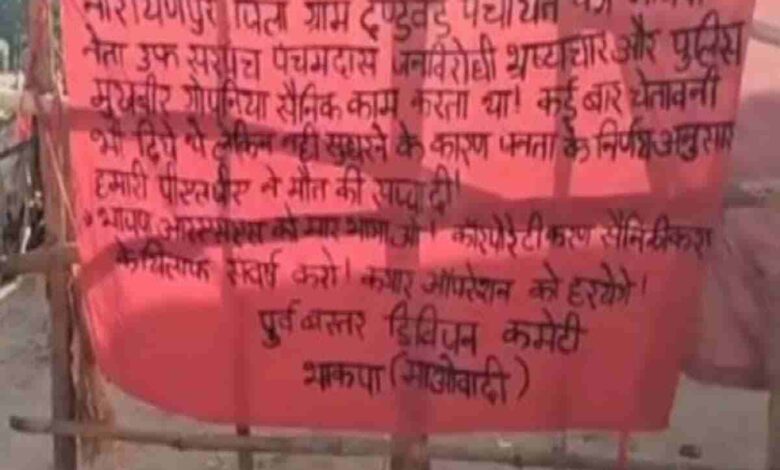 नारायणपुर जिला ग्राम दण्डवड पंचायत का
नेता उर्फ सरपंच पंचमदास जनविरोधी भ्रष्टाचार और पुलिस
मुखबीर गोपनिया सैनिक काम करता था! कई बार चेतावनी
भी दिये थे लेकिन नही सुधरने के कारण जनता के निर्णय अनुसार
हमारी पीएलजीए ने मौत की सजा दी!
भाजपा आरएसएस को मार भगाओ! कॉरपोरेटीकरण सैनिकीकरण
के खिलाफ संघर्ष करो! कगार ऑपरेशन को हरायेंगे!
पूर्व बस्तर डिविजन कमेटी
भाकपा (माओवादी)